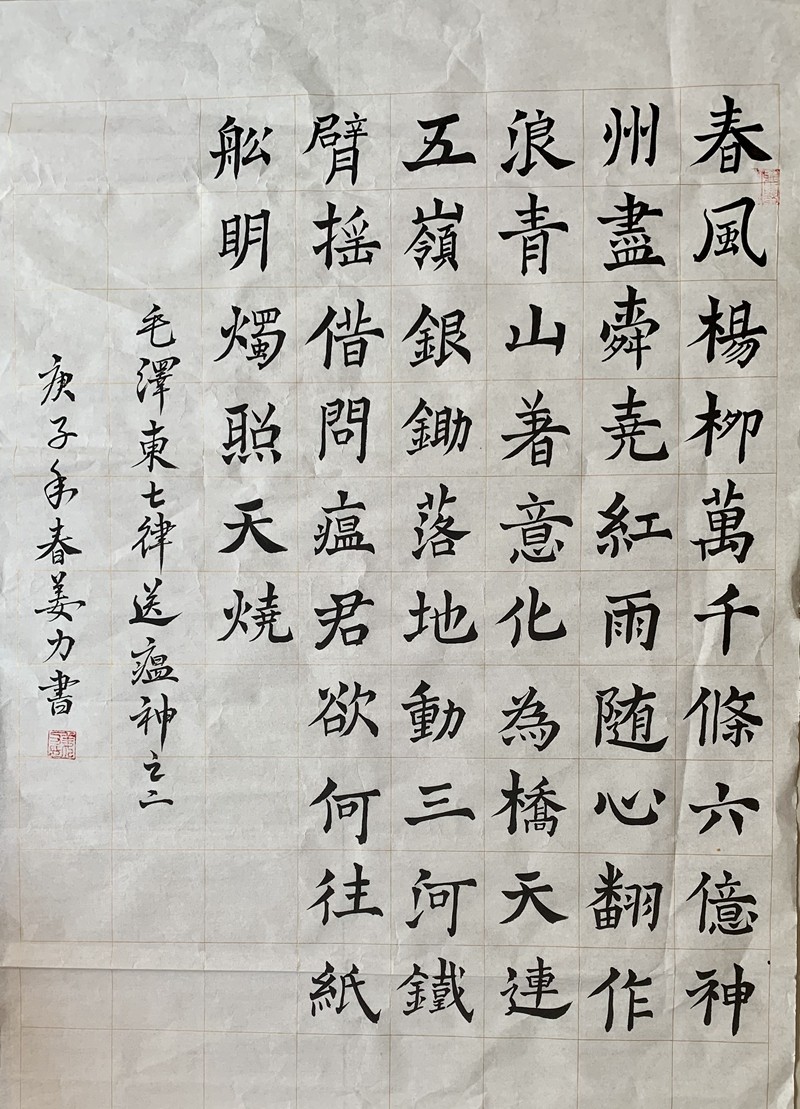 春風楊柳萬千條六億神
州盡舜堯紅雨随心翻作
浪青山着意化為橋天連
五嶺銀鋤落地動三河鐵
臂摇借問瘟君欲何往紙
舩明燭照天燒
毛澤東七律送瘟神之二
庚子年春姜力書